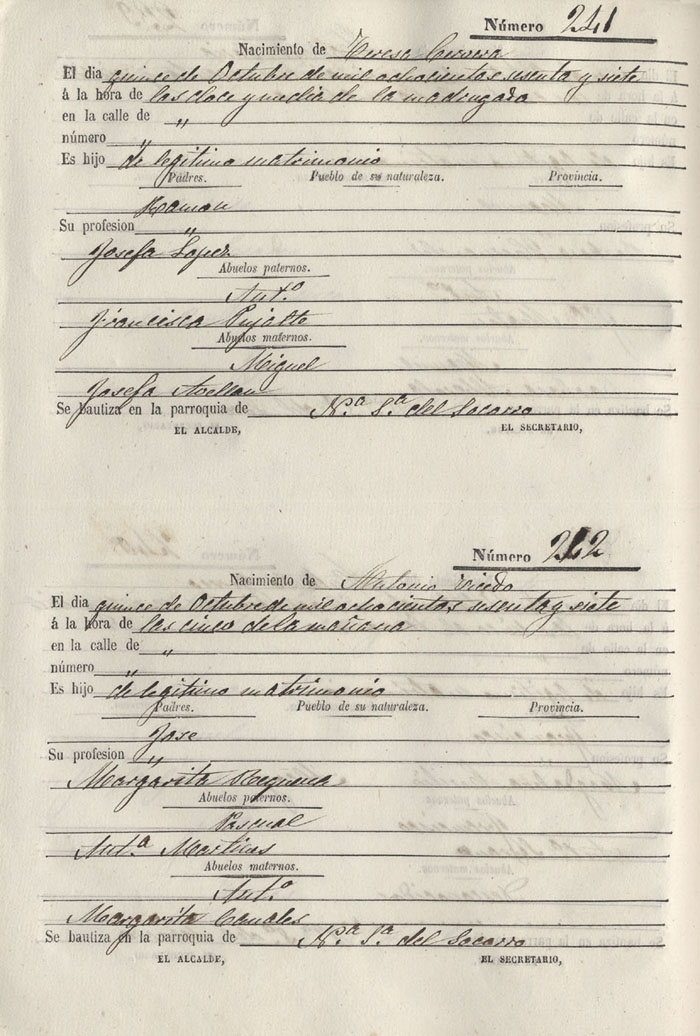 Número 241
Nacimiento de Teresa Cervera
El dia quince de Octubre de mil ochocientos sesenta y siete
á la hora de las doce y media de la madrugada
en la calle de "
número "
Es hijo de legitimo matrimonio
Padres. Pueblo de su naturaleza. Provincia.
Ramon
Su profesion "
Josefa Lopez
Abuelos paternos.
Ant.º
Francisca Pujalte
Abuelos maternos.
Miguel
Josefa Avellan
Se bautiza en la parroquia de N.ª S.ª del Socorro
EL ALCALDE, EL SECRETARIO,
Número 242
Nacimiento de Antonio Vicedo
El dia quince de Octubre de mil ochocientos sesenta y siete
á la hora de las cinco de la mañana
en la calle de "
número "
Es hijo de legitimo matrimonio
Padres. Pueblo de su naturaleza. Provincia.
Jose
Su profesion "
Margarita Requena
Abuelos paternos.
Pascual
Ant.ª
Abuelos maternos.
Ant.º
Margarita Canales
Se bautiza en la parroquia de N.ª S.ª del Socorro
EL ALCALDE, EL SECRETARIO,